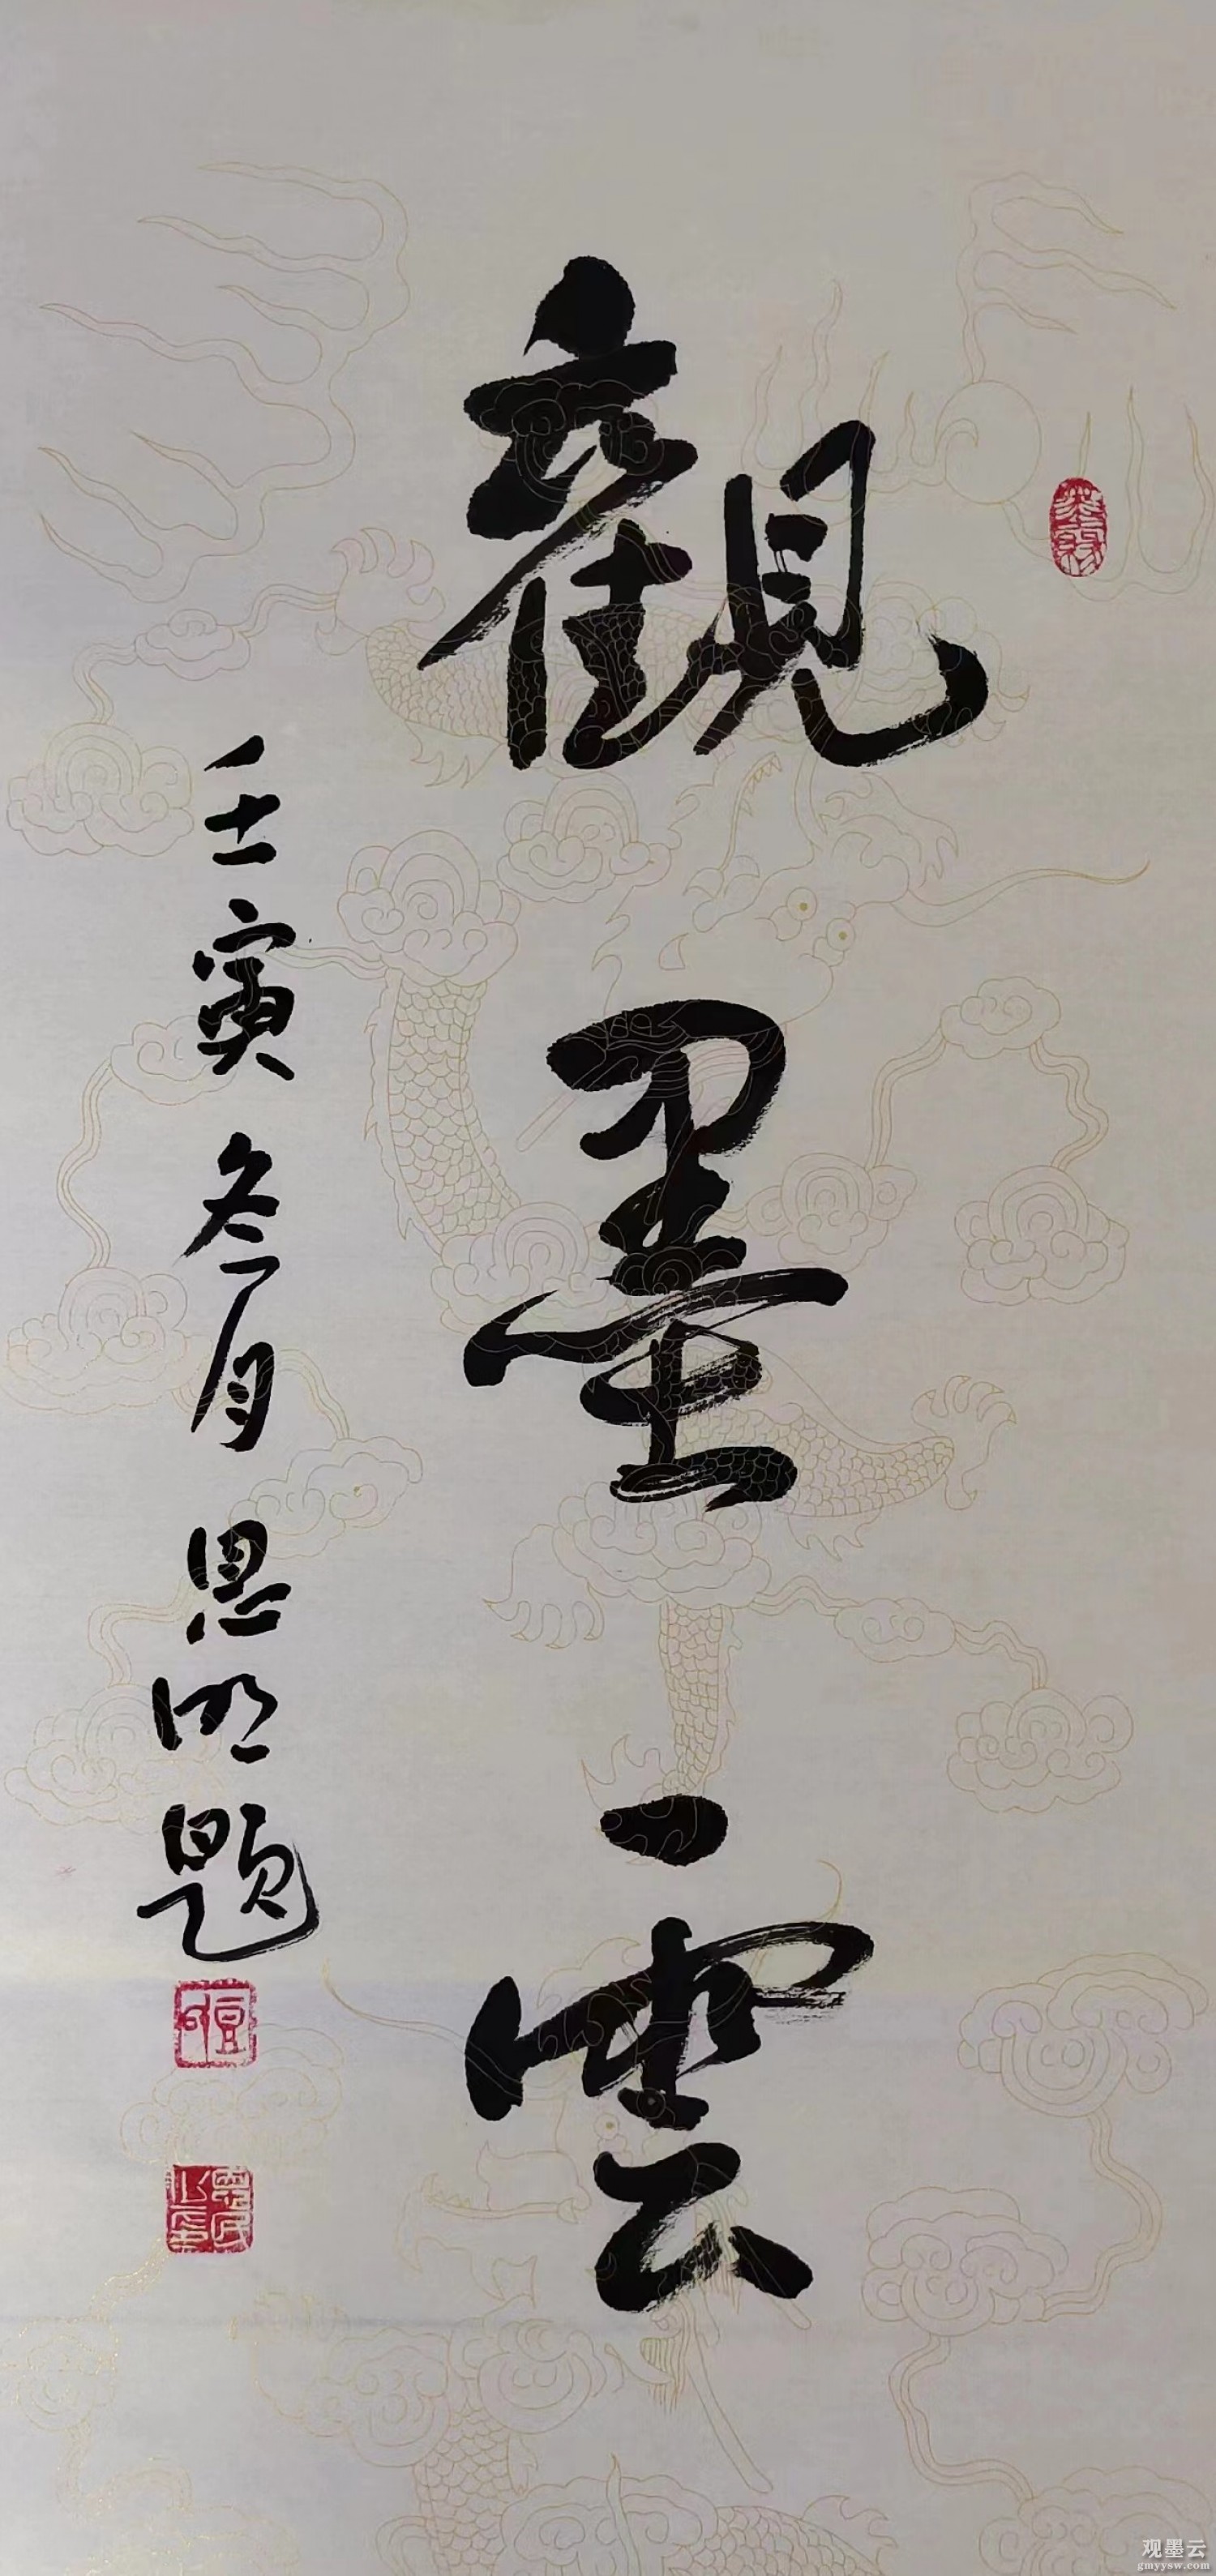 觀墨雲
壬寅冬月思明題
观墨云
gmyysw.com